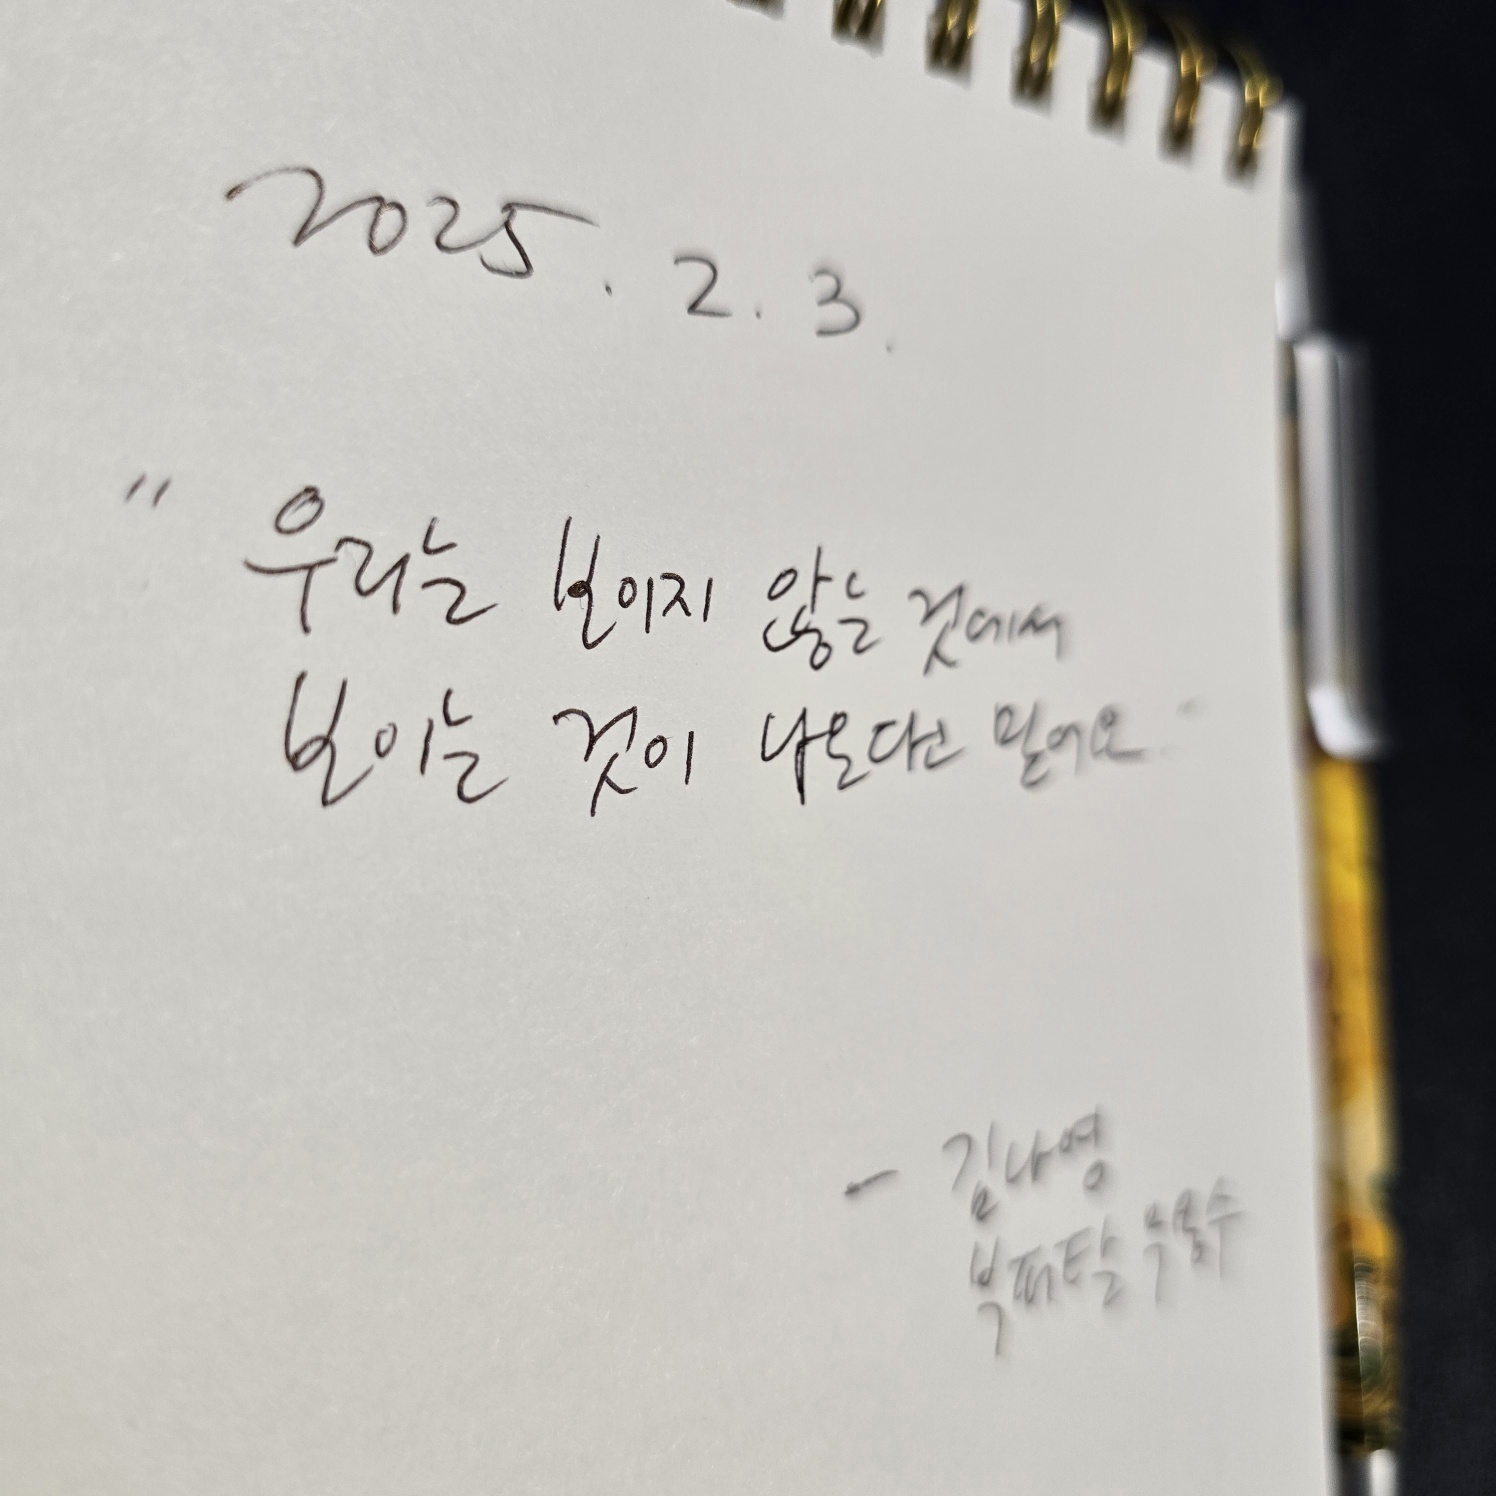 2025. 2. 3.
" 우리는 보이지 않는 것에서
보이는 것이 나온다고 믿어요."
- 김나영